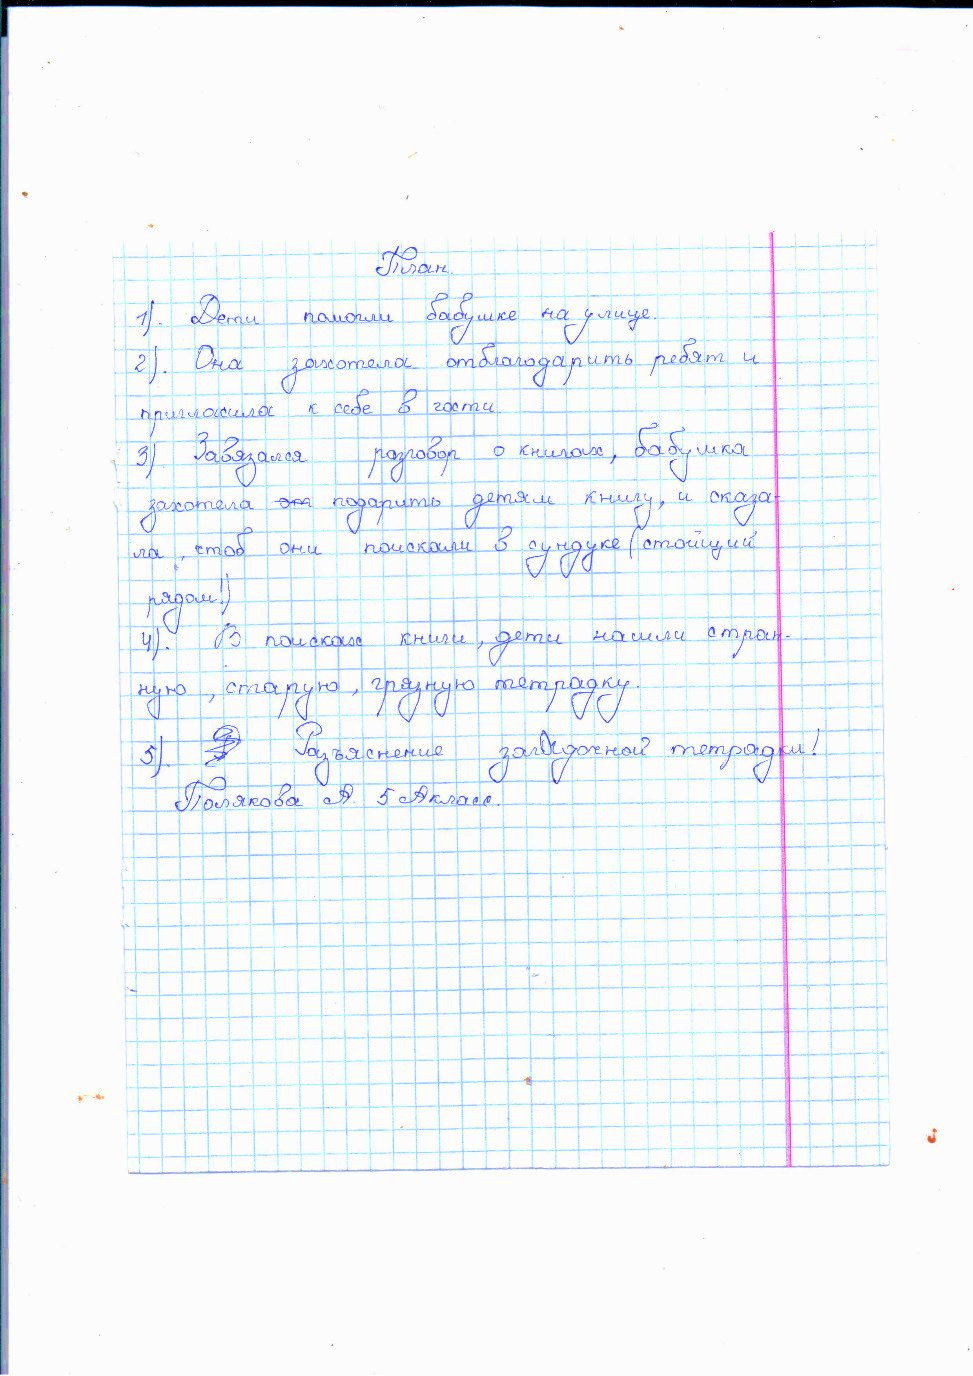 План.
1). Дети помогли бабушке на улице.
2). Она захотела отблагодарить ребят и
пригласила к себе в гости.
3) Завязался разговор о книгах, бабушка
захотела подарить детям книгу, и сказа-
ла, чтоб они поискали в сундуке (стойщий
рядом!)
4). В поисках книги, дети нашли стран-
ную, старую, грязную тетрадку.
5). Разъяснение загадочной тетрадки!
Полякова А. 5 А класс.